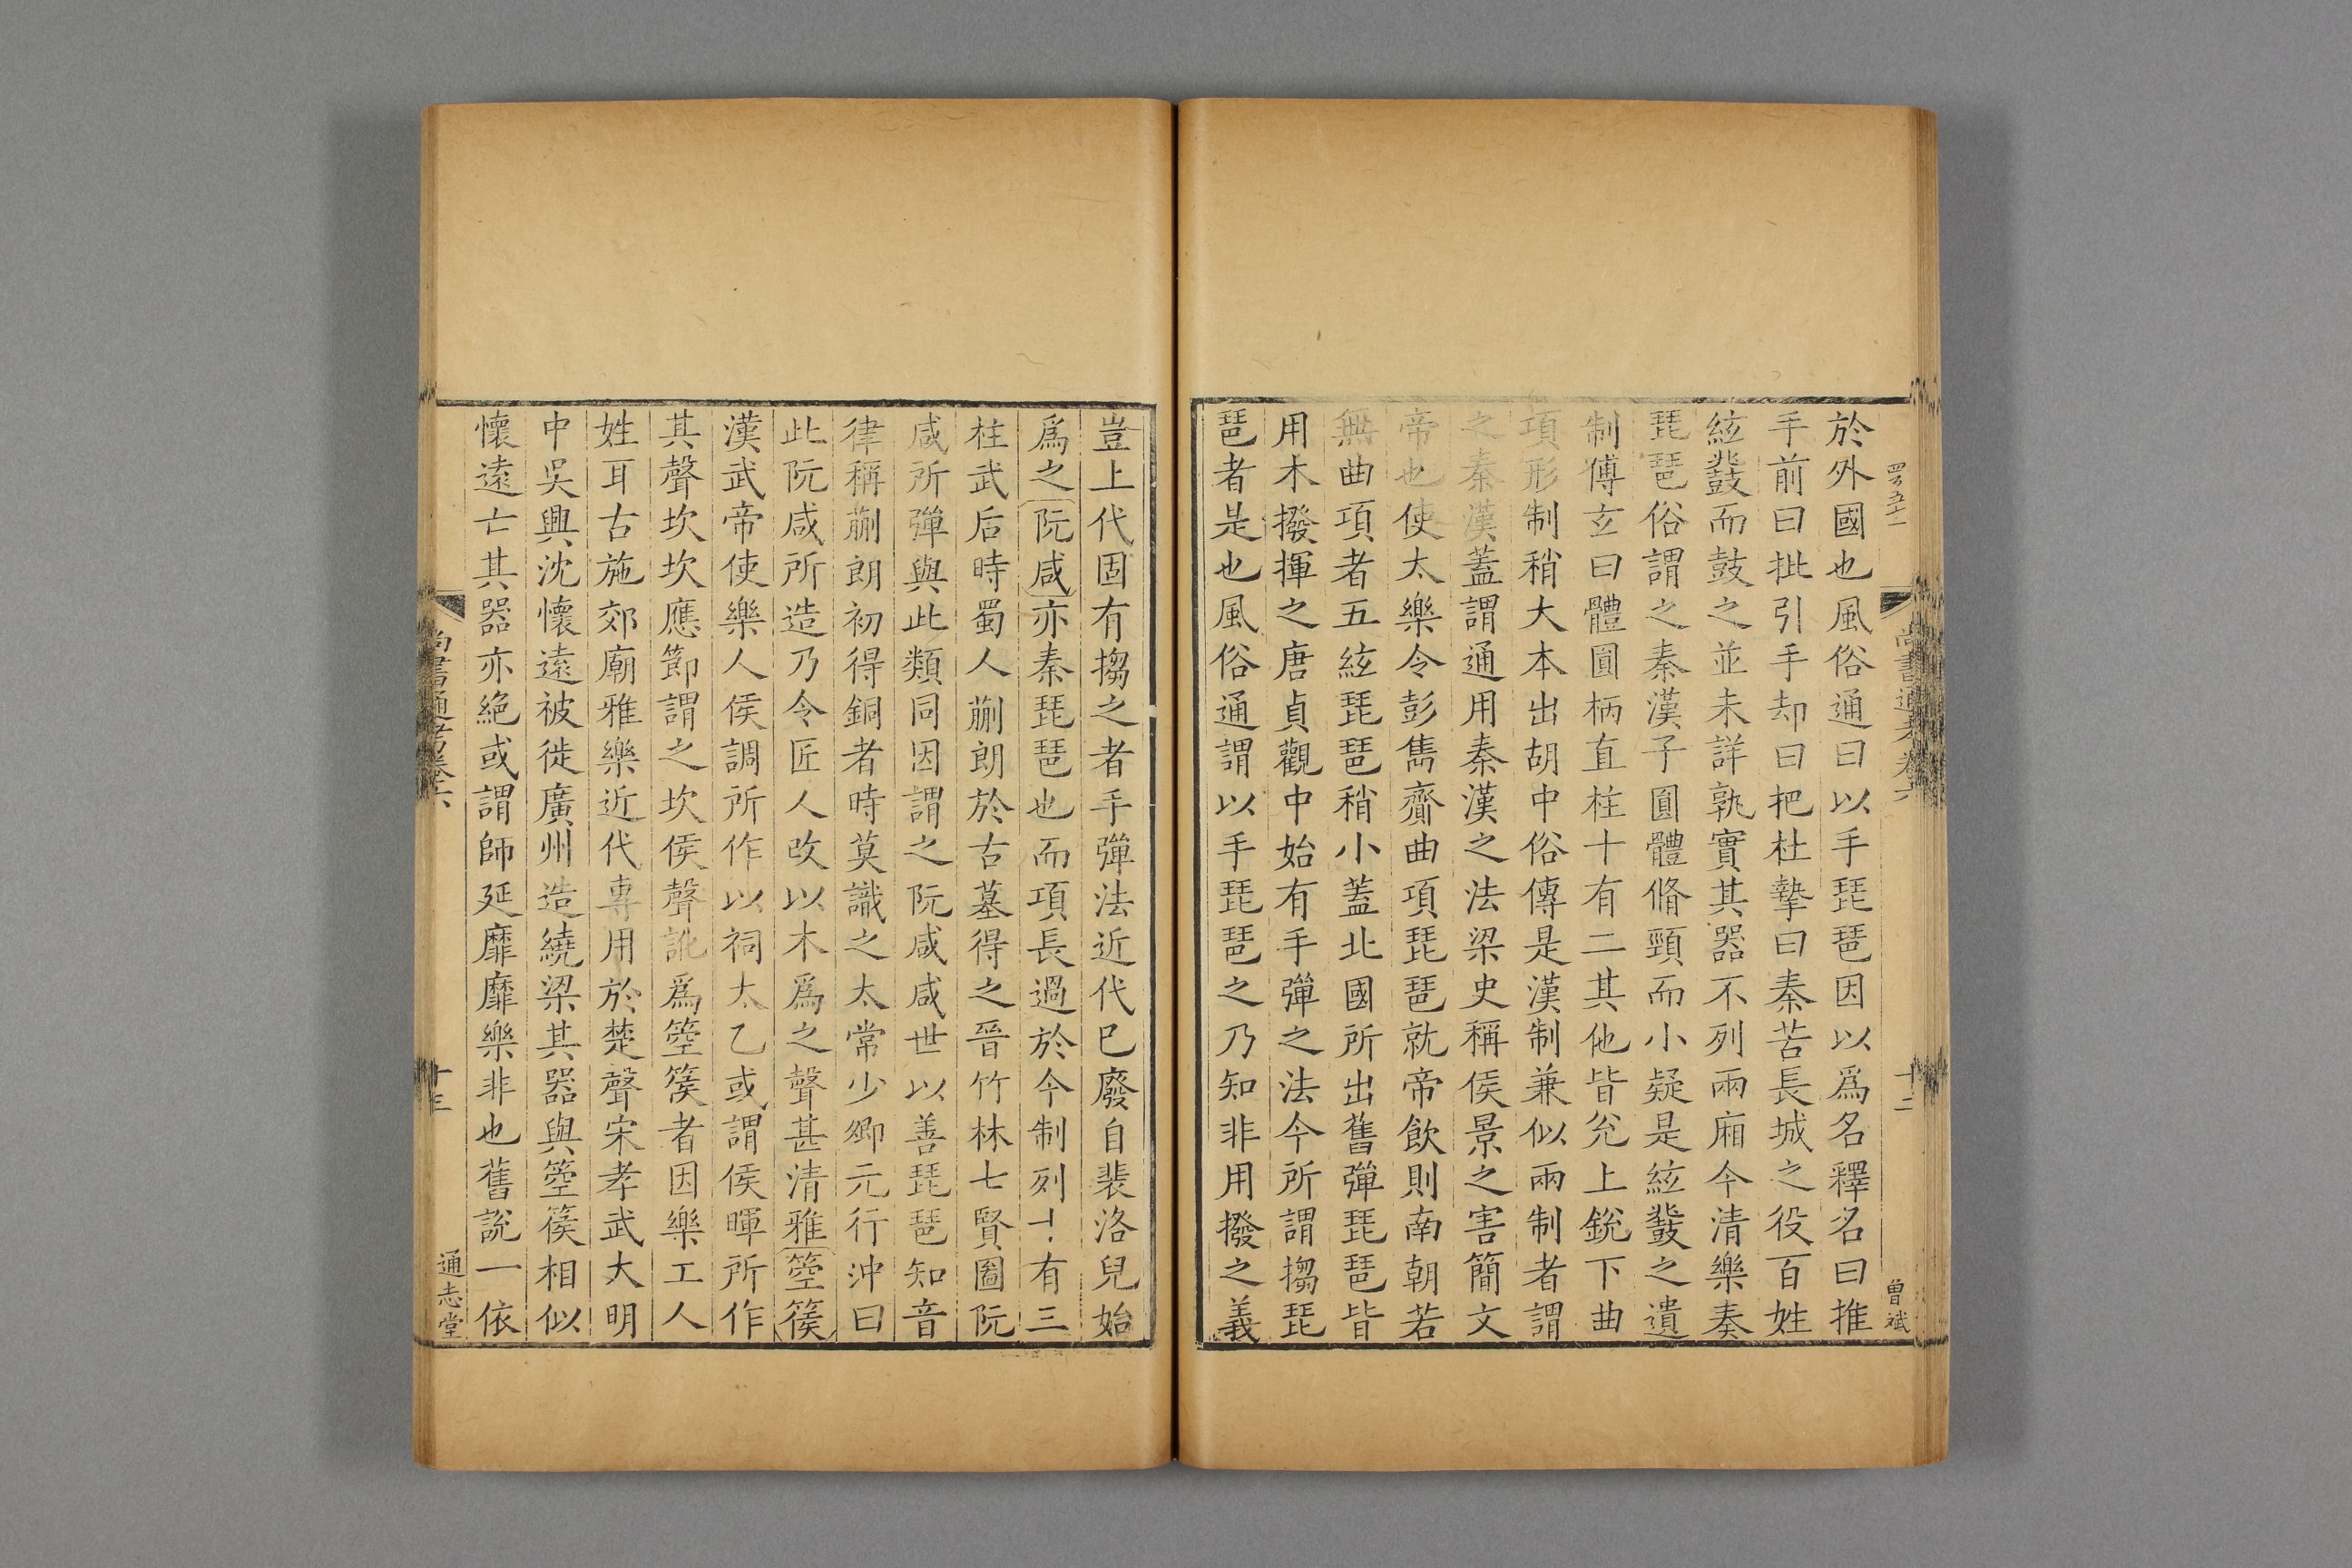 於外國也風俗通曰以手琵琶因以爲名釋名曰推
手前曰批引手却曰把杜摯曰秦苦長城之役百姓
絃鼗而鼓之並未詳孰實其器不列兩廂今清樂奏
琵琶俗謂之秦漢子圓體脩頸而小疑是絃鼗之遺
制傅玄曰體圓柄直柱十有二其他皆兊上銳下曲
項形制稍大本出胡中俗傳是漢制兼似兩制者謂
之秦漢蓋謂通用秦漢之法梁史稱侯景之害簡文
帝也使太樂令彭雋齎曲項琵琶就帝飲則南朝若
無曲項者五絃琵琶稍小蓋北國所出舊彈琵琶皆
用木撥揮之唐貞觀中始有手彈之法今所謂搊琵
琶者是也風俗通謂以手琵琶之乃知非用撥之義
尚書通考卷六
十二
曾斌
豈上代固有搊之者手彈法近代已廢自裴洛兒始
爲之阮咸亦秦琵琶也而項長過於今制列十有三
柱武后時蜀人蒯朗於古墓得之晉竹林七賢圖阮
咸所彈與此類同因謂之阮咸咸世以善琵琶知音
律稱蒯朗初得銅者時莫識之太常少卿元行沖曰
此阮咸所造乃令匠人改以木爲之聲甚清雅箜篌
漢武帝使樂人侯調所作以祠太乙或謂侯暉所作
其聲坎坎應節謂之坎侯聲訛爲箜篌者因樂工人
姓耳古施郊廟雅樂近代專用於楚聲宋孝武大明
中吳興沈懷遠被徙廣州造繞梁其器與箜篌相似
懷遠亡其器亦絶或謂師延靡靡樂非也舊說一依
尚書通考卷六
十三
通志堂